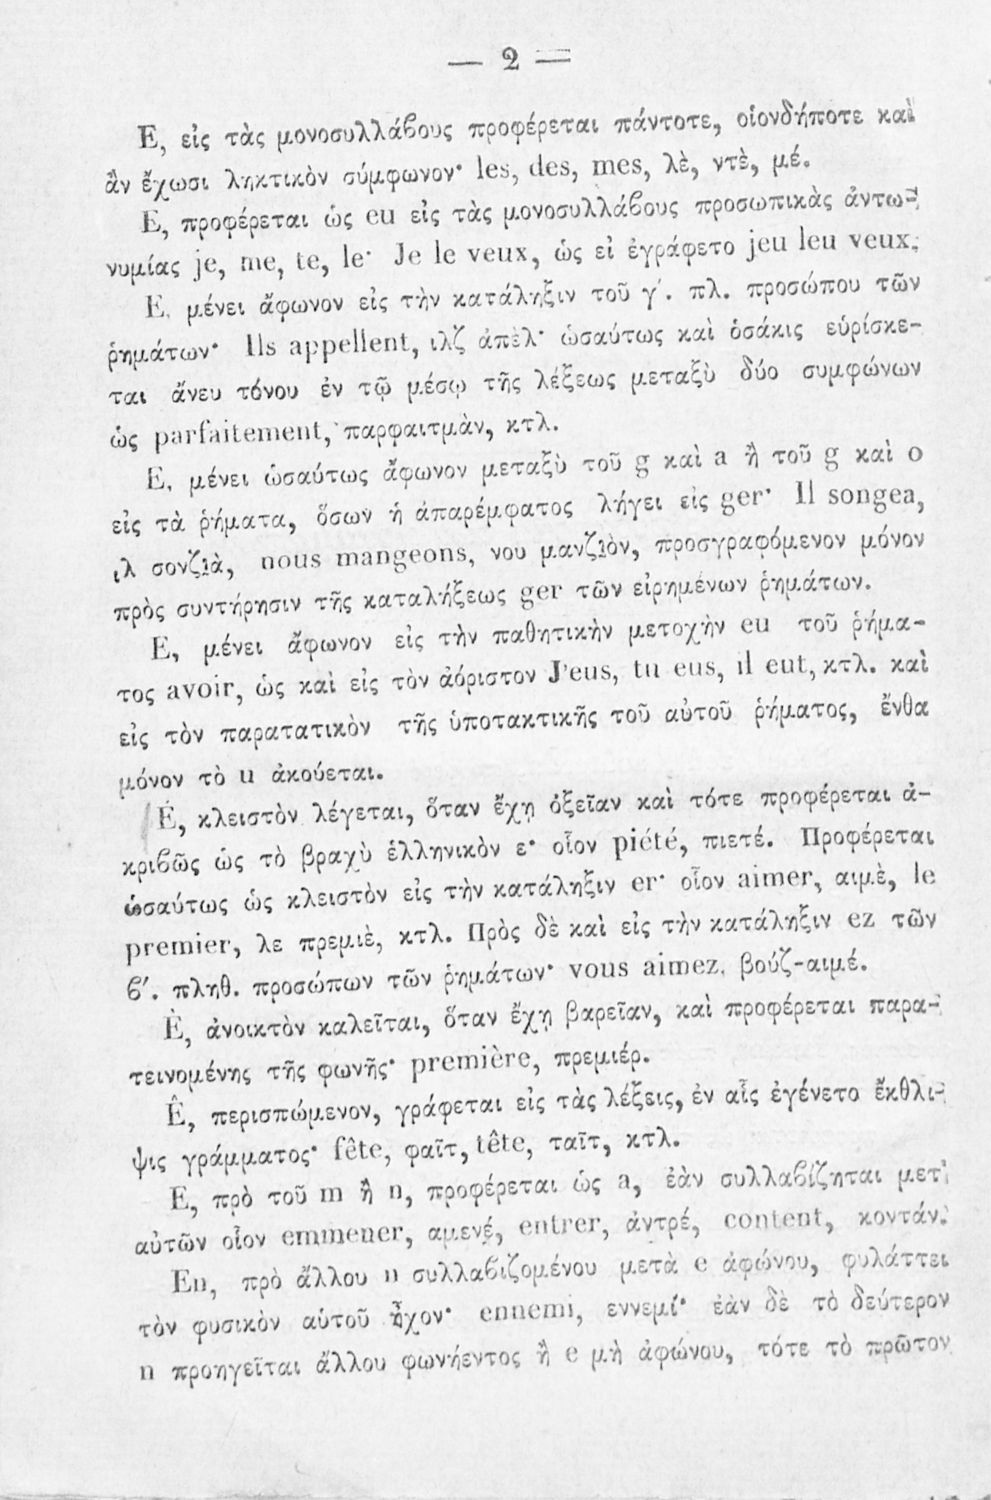 — 2 —
E, εἰς τὰς μονοσυλλάϐους προφέρεται πάντοτε, οἱονδήποτε καὶ
ἂν ἔχωσι ληκτικὸν σύμφωνον· les, des, mes, λὲ, ντὲ, μέ.
E, προφέρεται ὡς eu εἰς τὰς μονοσυλλάϐους προσωπικὰς ἀντω-
νυμίας je, me, te, le· Je le veux, ὡς εἰ ἐγράφετο jeu leu veux.
E, μένει ἄφωνον εἰς τὴν κατάληξιν τοῦ γ΄. πλ. προσώπου τῶν
ῥημάτων· Ils appellent, ιλζ ἀπὲλ· ὡσαύτως καὶ ὁσάκις εὑρίσκε-
ται ἄνευ τόνου ἐν τῷ μέσῳ τῆς λέξεως μεταξὺ δύο συμφώνων
ὡς parfaitement, παρφαιτμὰν, κτλ.
E, μένει ὡσαύτως ἄφωνον μεταξὺ τοῦ g καὶ a ἢ τοῦ g καὶ o
εἰς τὰ ῥήματα, ὅσων ἡ ἀπαρέμφατος λήγει εἰς ger· Il songea,
ιλ σονζιὰ, nous mangeons, νου μανζιὸν, προσγραφόμενον μόνον
πρὸς συντήρησιν τῆς καταλήξεως ger τῶν εἰρημένων ῥημάτων.
E, μένει ἄφωνον εἰς τὴν παθητικὴν μετοχὴν eu τοῦ ῥήμα-
τος avoir, ὡς καὶ εἰς τὸν ἀόριστον J'eus, tu eus, il eut, κτλ. καὶ
εἰς τὸν παρατατικὸν τῆς ὑποτακτικῆς τοῦ αὐτοῦ ῥήματος, ἔνθα
μόνον τὸ u ἀκούεται.
É, κλειστὸν λέγεται, ὅταν ἔχῃ ὀξεῖαν καὶ τότε προφέρεται ἀ-
κριϐῶς ὡς τὸ βραχὺ ἑλληνικὸν ε· οἷον piété, πιετέ. Προφέρεται
ὡσαύτως ὡς κλειστὸν εἰς τὴν κατάληξιν er· οἷον aimer, αιμὲ, le
premier, λε πρεμιὲ, κτλ. Πρὸς δὲ καὶ εἰς τὴν κατάληξιν ez τῶν
ϐ΄. πληθ. προσώπων τῶν ῥημάτων· vous aimez, βούζ-αιμέ.
È, ἀνοικτὸν καλεῖται, ὅταν ἔχῃ βαρεῖαν, καὶ προφέρεται παρα-
τεινομένης τῆς φωνῆς· première, πρεμιέρ.
Ê, περισπώμενον, γράφεται εἰς τὰς λέξεις, ἐν αἷς ἐγένετο ἔκθλι-
ψις γράμματος· fête, φαῖτ, tête, ταῖτ, κτλ.
E, πρὸ τοῦ m ἢ n, προφέρεται ὡς a, ἐὰν συλλαϐίζηται μετ'
αὐτῶν οἷον emmener, αμενέ, entrer, ἀντρέ, content, κοντάν.
En, πρὸ ἄλλου n συλλαϐιζομένου μετὰ e ἀφώνου, φυλάττει
τὸν φυσικὸν αὑτοῦ ἦχον· ennemi, εννεμί· ἐὰν δὲ τὸ δεύτερον
n προηγεῖται ἄλλου φωνήεντος ἢ e μὴ ἀφώνου, τότε τὸ πρῶτον